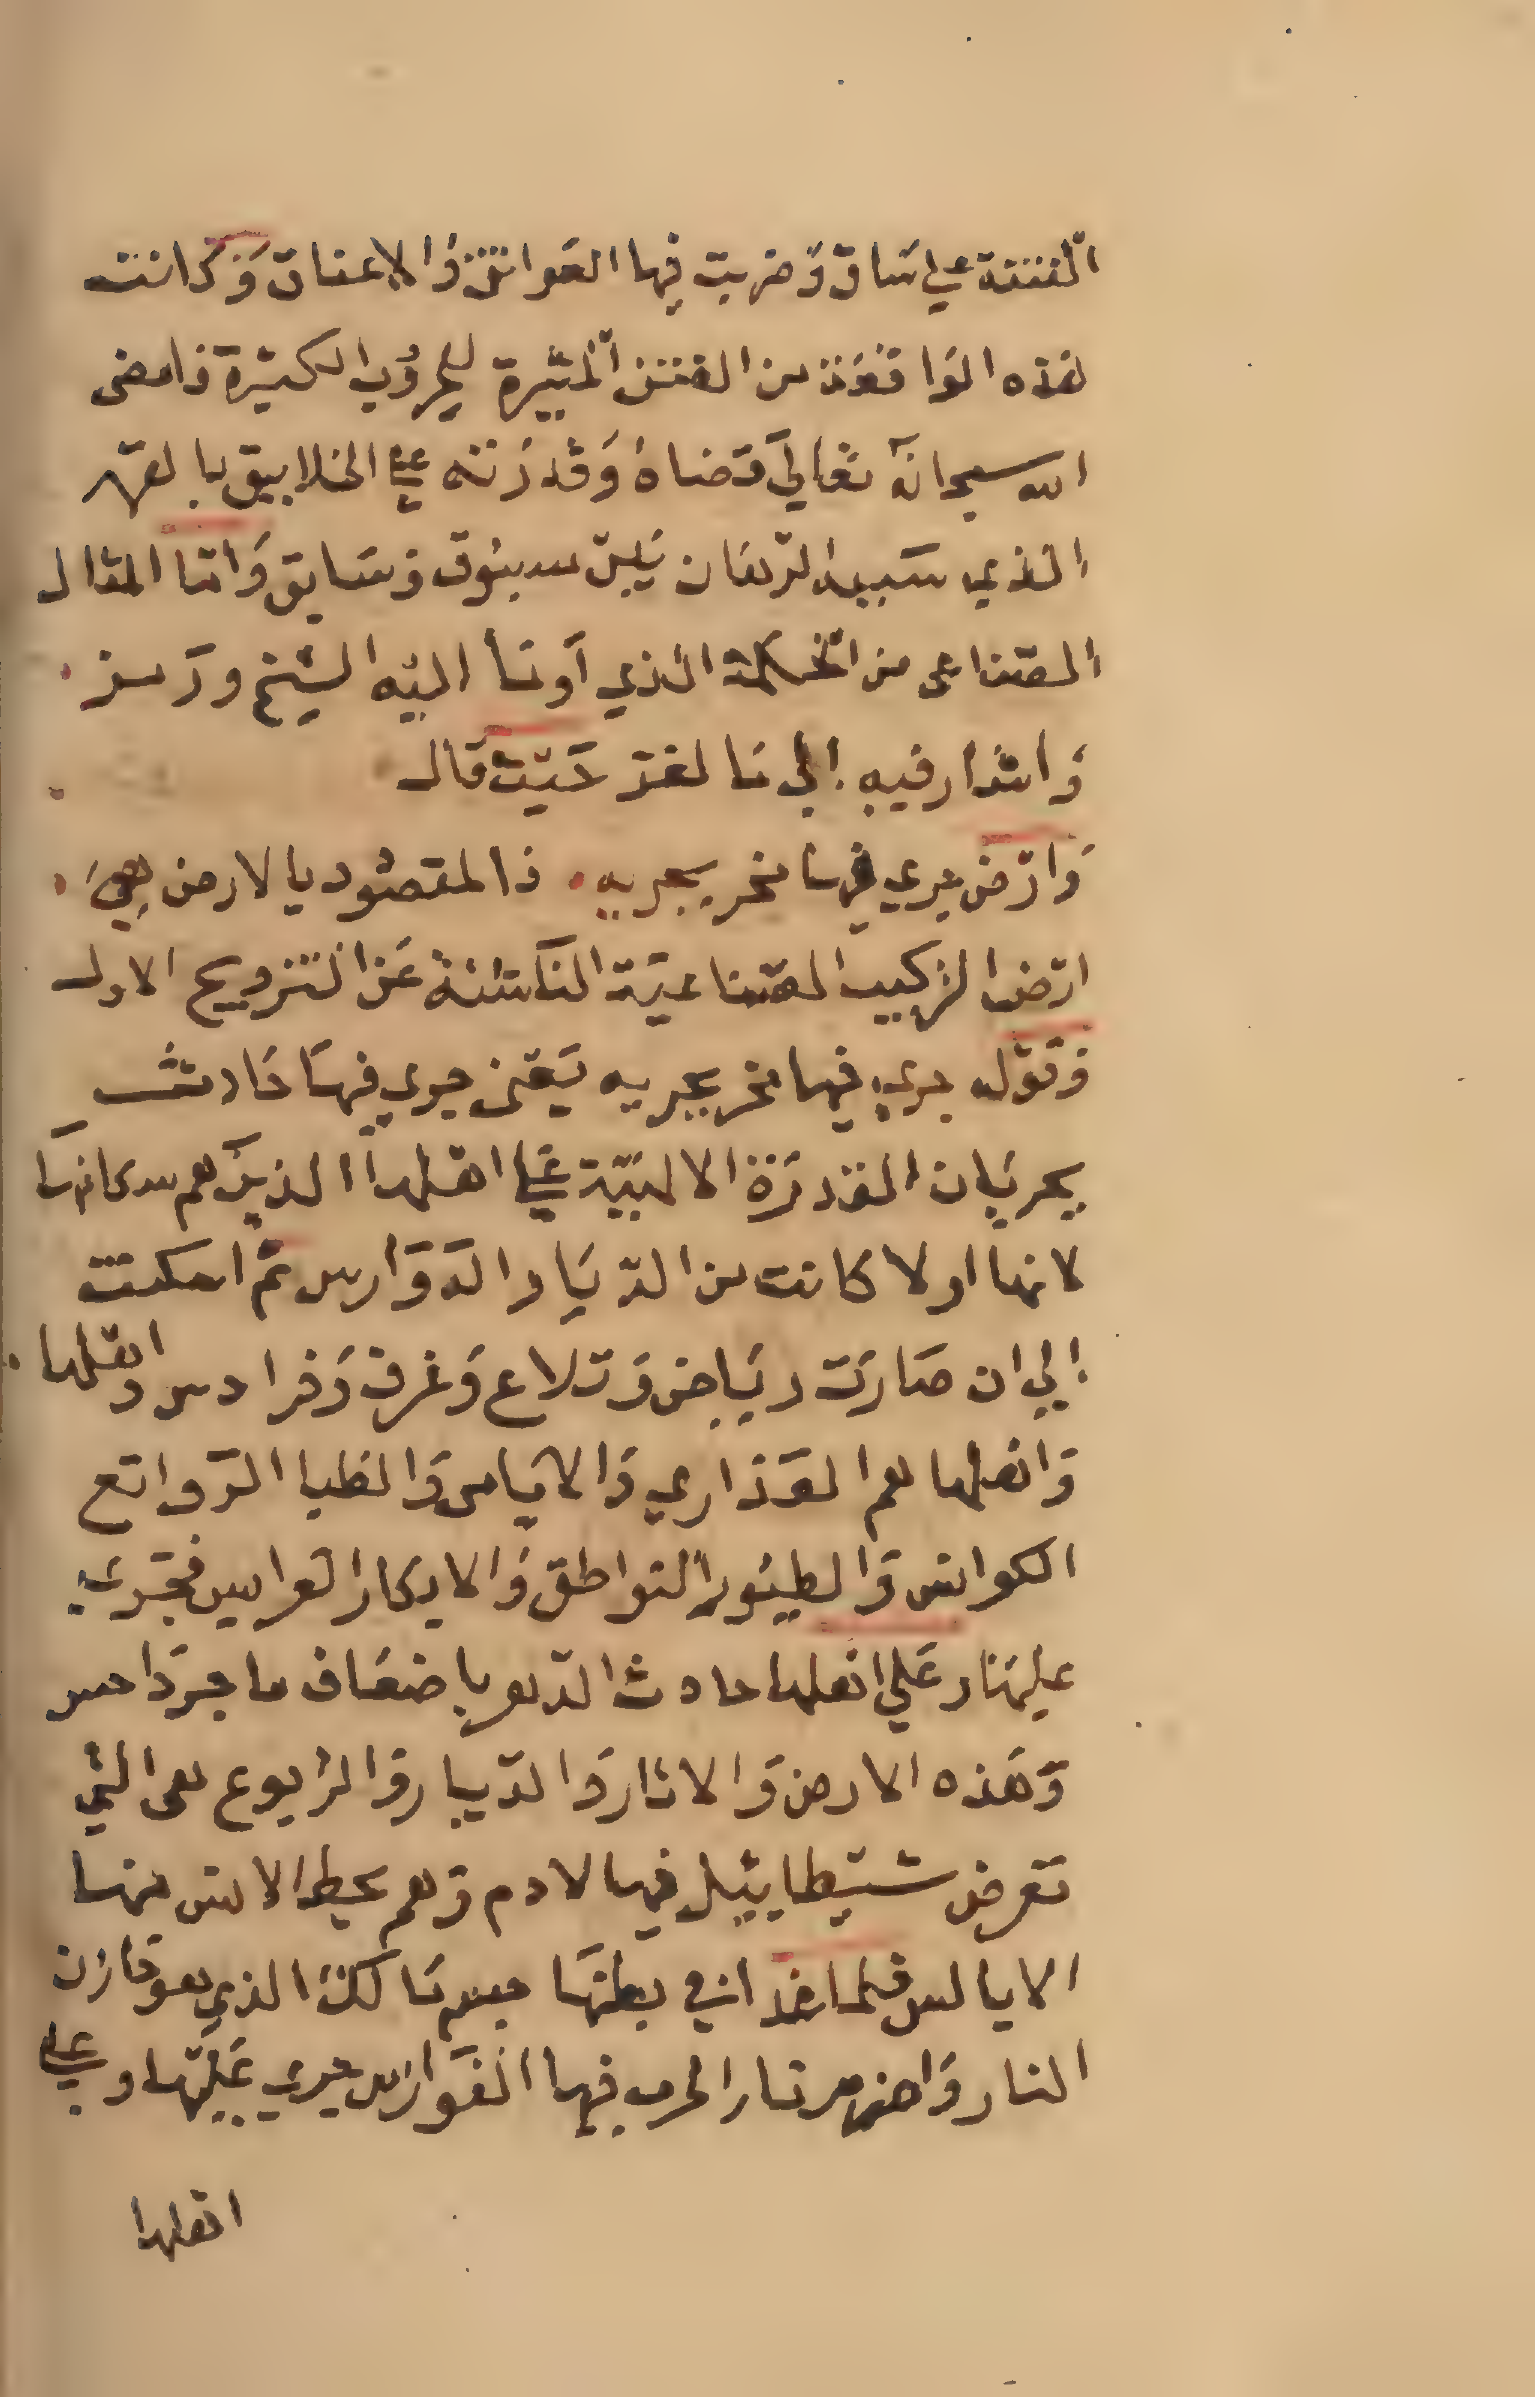 الفتنة علي ساق وضربت فيها العواتق والاعناق وكانت
هذه الواقعة من الفتن المثيرة للحروب الكثيرة فامضى
الله سبحانه تعالي قضاه وقدرته علي الخلايق بالقهر
الذي سبيد الزمان بين مسبوق وسابق واما المثال
الصناعى من الحكمة الذي اوما اليه الشيخ ورمز
واشار فيه الى ما لغز حيث قال
وارض جري فيها بحر يجريه فالمقصود بالارض هي
ارض التركيب الصناعية الناشئة عن التزويج الاول
وقوله جري فيها بحر يجريه يعنى جري فيها حادث
بجريان القدرة الالهية علي اهلها الذين هم سكانها
لانها اولا كانت من الديار الدوارس ثم اسكنت
الي ان صارت رياض وتلاع وغرف وفرادس واهلها
واهلها هم العذاري والاياس والظبا الرواتع
الكوانس والطيور النواطق والابكار العرايس فجري
عليها وعلي اهلها حادث الدهر باضعاف ما جري داحس
وهذه الارض والاثار والديار والربوع هى التي
تعرض شيطاييل فيها لادم وهم بحط الانس منها
الابالس فلما غدا في بطنها جسم مالك الذي هو خازن
النار واضرم نار الحرب فيها الفوارس جري عليها وعلي
اهلها